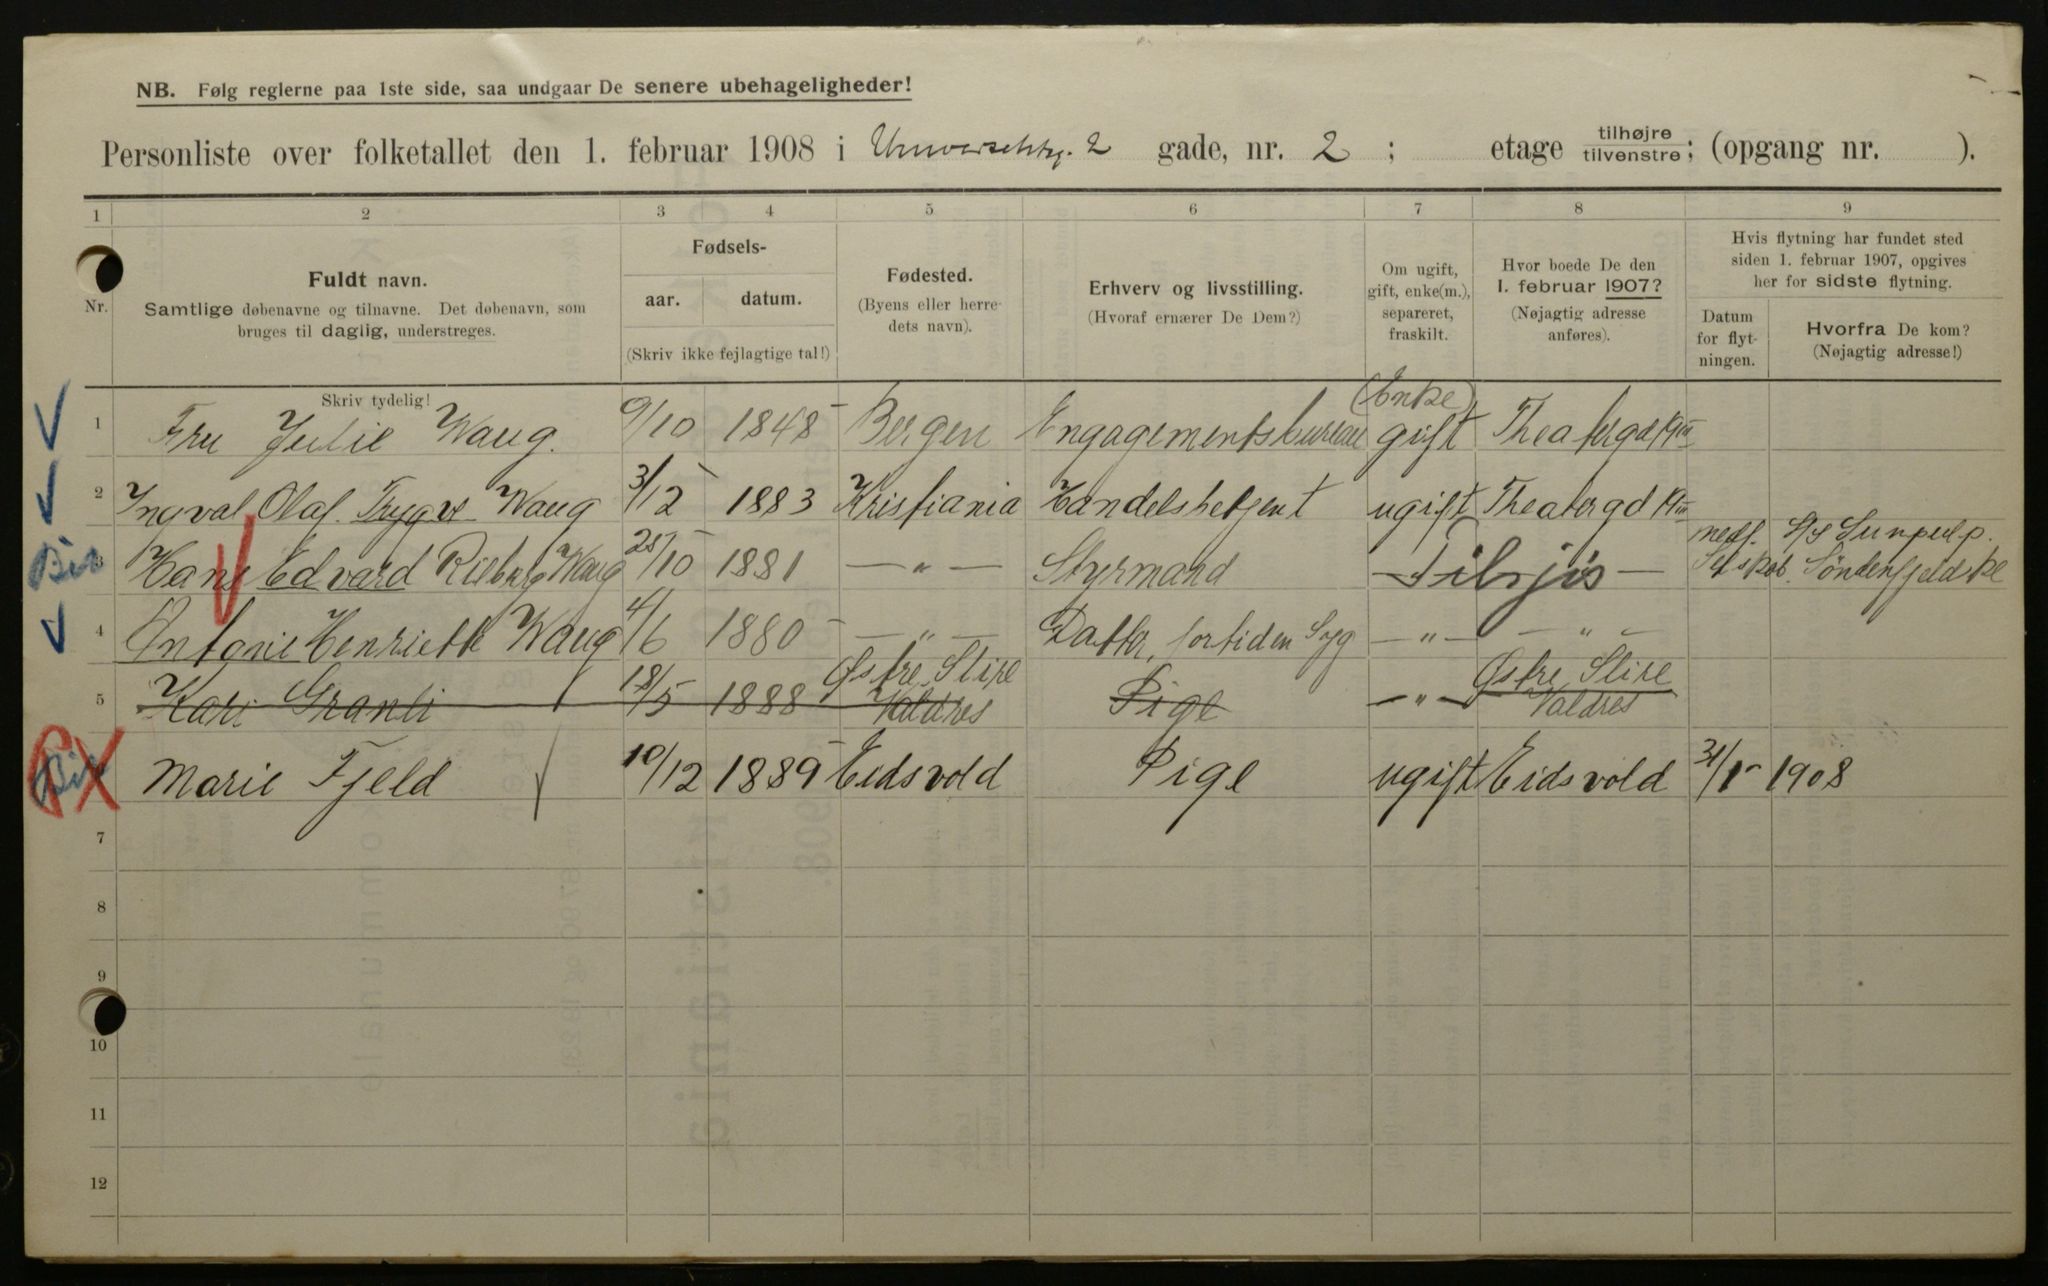 NB. Følg reglerne paa 1ste side, saa undgaar De senere ubehageligheder!
Personliste over folketallet den 1. februar 1908 i Universitetsg. 2 gade, nr. 2 ; etage tilhøjre tilvenstre; (opgang nr. ).
1 2 3 4 5 6 7 8 9
Nr.
Fuldt navn.
Samtlige døbenavne og tilnavne. Det døbenavn, som
bruges til daglig, understreges.
Fødsels-
aar. datum.
(Skriv ikke fejlagtige tal!)
Fødested.
(Byens eller herre-
dets navn).
Erhverv og livsstilling.
(Hvoraf ernærer De Dem?)
Om ugift,
gift, enke(m.),
separeret,
fraskilt.
Hvor boede De den
1. februar 1907?
(Nøjagtig adresse
anføres).
Hvis flytning har fundet sted
siden 1. februar 1907, opgives
her for sidste flytning.
Datum
for flyt-
ningen.
Hvorfra De kom?
(Nøjagtig adresse!)
Skriv tydelig!
(Enke)
1 Fru Julie Waug. 9/10 1848 Bergen Engagementsbureau gift Theatergd
2 Ingval Olaf Trygve Waug 3/12 1883 Kristiania Handelsbetjent ugift Theatergd
3 Hans Edvard Waug /10 1881 — " — Styrmand — Tilsjøs — Selskab. Søndenfjeldske
4 Antonie Henriette Waug 4/6 1880 — " — Datter, fortiden Syg — " — — " —
5 Kari Granli 18/5 1888 Østre Slire Valdres Pige — " — Østre Slire Valdres
Marie Fjeld 10/12 1889 Eidsvold Pige ugift Eidsvold 31/1 1908
7
8
9
10
11
12